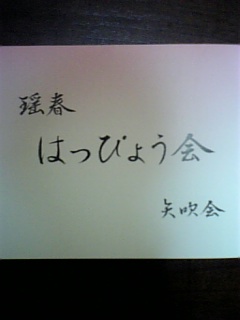 瑶春
はっぴょう会
矢吹会